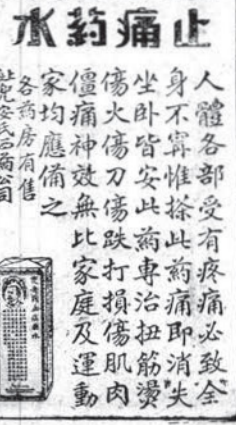 止痛葯水
人體各部受有疼痛必致全
身不寗惟搽此葯痛即消失
坐卧皆安此葯專治扭筋燙
傷火傷刀傷跌打損傷肌肉
僵痛神效無比家庭及運動
家均應備之
各葯房有售
兜安氏西葯公司